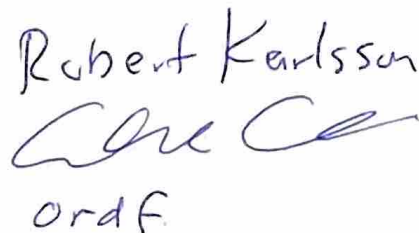 Robert Karlsson
ordf.